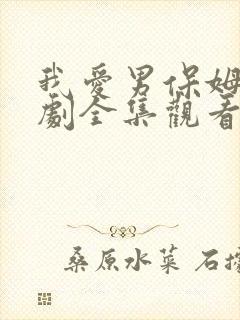 我愛男保姆
劇全集觀看
桑原水菜 石